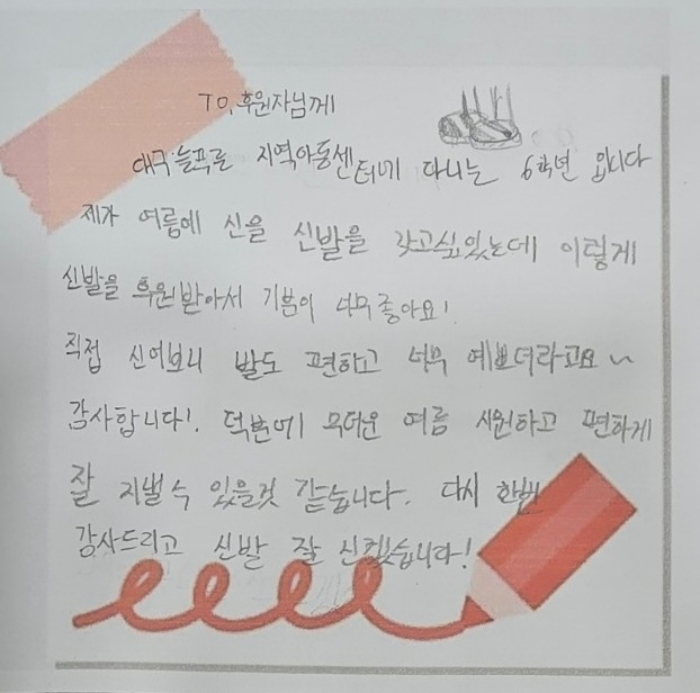 TO, 후원자님께
대구 늘푸른 지역아동센터에 다니는 6학년 입니다
제가 여름에 신을 신발을 갖고싶었는데 이렇게
신발을 후원받아서 기분이 너무 좋아요!
직접 신어보니 발도 편하고 너무 예쁘더라고요~
감사합니다!. 덕분에 무더운 여름 시원하고 편하게
잘 지낼 수 있을것 같습니다. 다시 한번
감사드리고 신발 잘 신겠습니다!